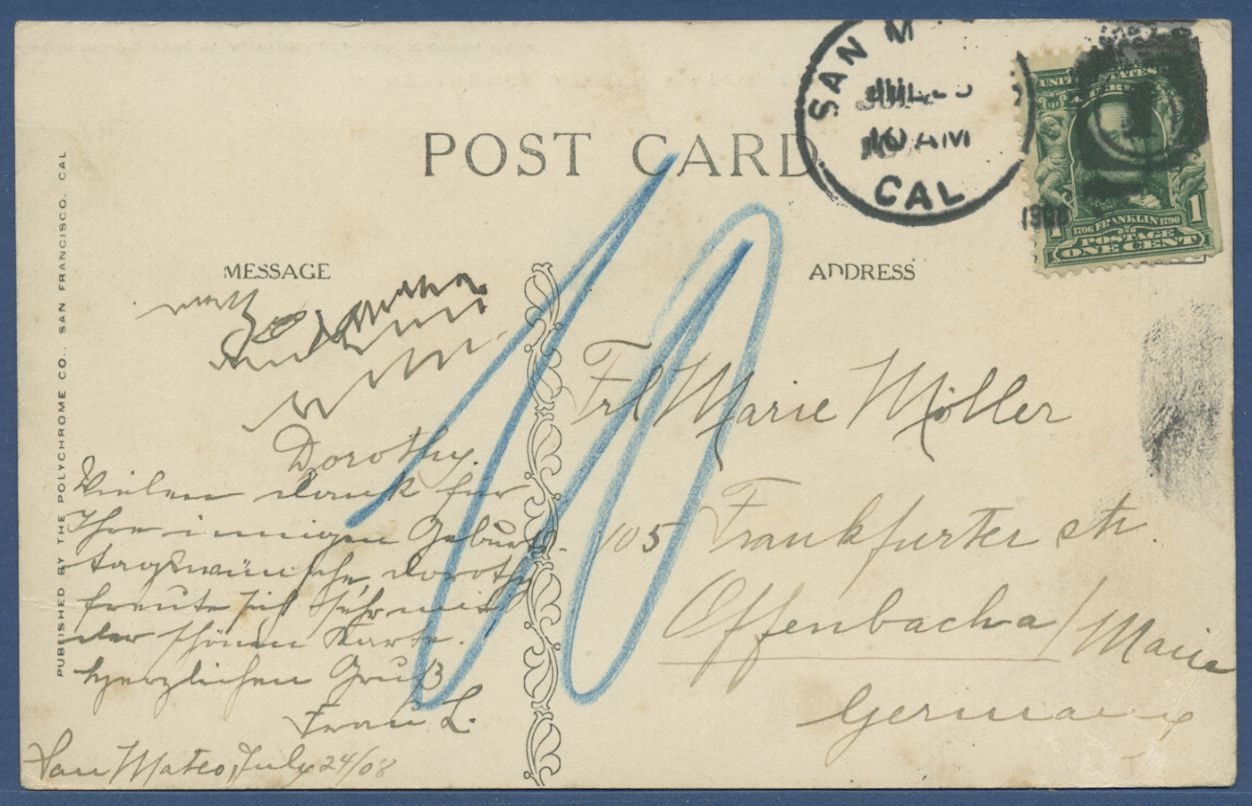 POST CARD
SAN M
JUL 25
10 AM
CAL
1908
UNITED STATES
1706 FRANKLIN 1790
1 1
POSTAGE
ONE CENT
PUBLISHED BY THE POLYCHROME CO., SAN FRANCISCO, CAL
MESSAGE
Dorothy.
Vielen Dank für
Ihre innigen Geburts-
tagswünsche, Dorothy
freute sich sehr mit
der schönen Karte.
Herzlichen Gruß
Frau L.
San Mateo, July 24/08
10
ADDRESS
Frl Marie Möller
105 Frankfurter str.
Offenbach a/Main
Germany